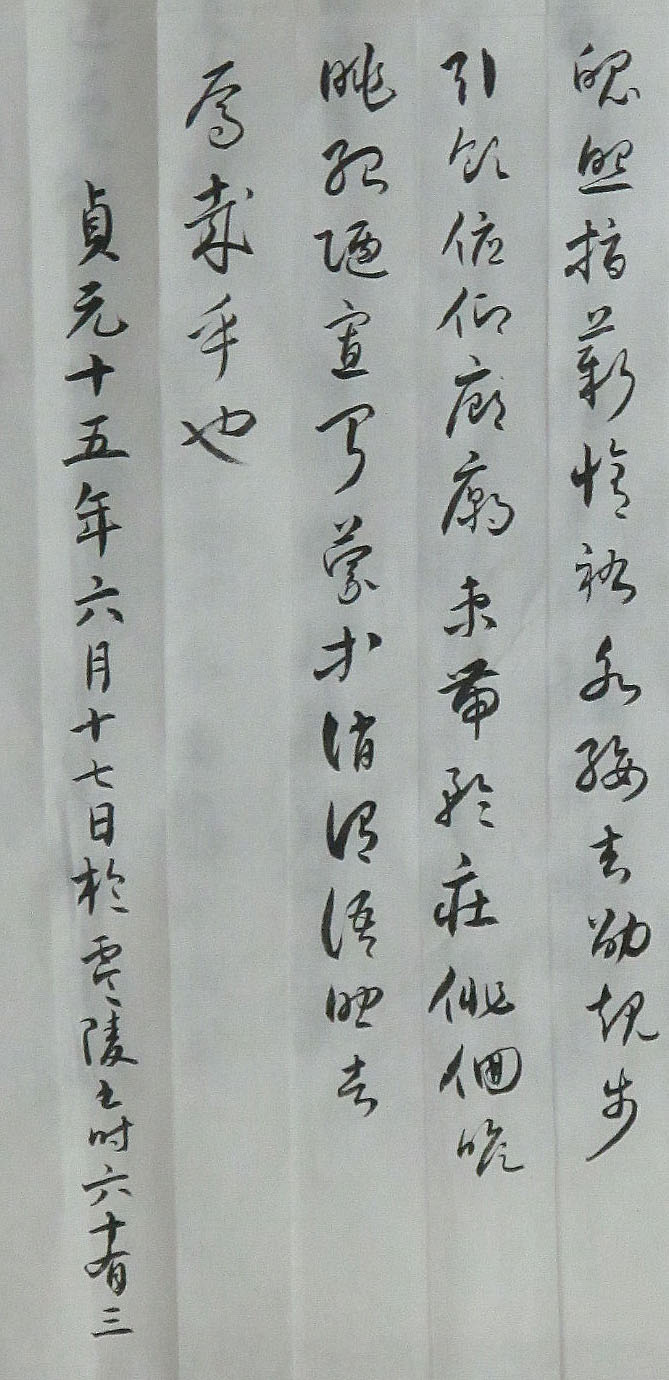 魄照指薪脩祜永綏吉劭矩步
引領俯仰廊廟束帶矜莊徘徊瞻
眺孤陋寡聞愚蒙等誚謂語助者
焉哉乎也
貞元十五年六月十七日於零陵書時六十有三